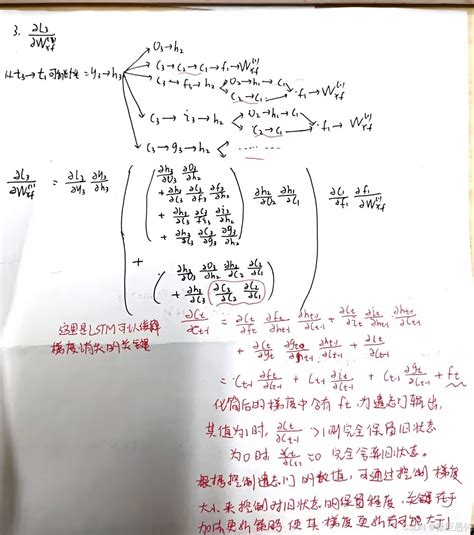 3. ∂L₃/∂W_xf⁽¹⁾
以t₃→t₁可能性 = y₃→h₃
O₃→h₂
C₃→C₂→C₁→f₁→W_xf⁽¹⁾
C₃→f₃→h₂ O₂→h₁→C₁ C₂→C₁ ·f₁→W_xf⁽¹⁾
C₃→i₃→h₂ O₂→h₁→C₁ C₂→C₁ ·f₁→W_xf⁽¹⁾
C₃→g₃→h₂ ……
∂L₃/∂W_xf⁽¹⁾ = ∂L₃/∂y₃ ∂y₃/∂h₃
∂h₃/∂O₃ ∂O₃/∂h₂
+ ∂h₃/∂C₃ ∂C₃/∂f₃ ∂f₃/∂h₂
+ ∂h₃/∂C₃ ∂C₃/∂i₃ ∂i₃/∂h₂
+ ∂h₃/∂C₃ ∂C₃/∂g₃ ∂g₃/∂h₂
∂h₂/∂O₂ ∂h₁/∂C₁
∂C₁/∂f₁ ∂f₁/∂W_xf⁽¹⁾
+
∂h₃/∂O₃ ∂O₃/∂h₂ ∂h₂/∂C₂ ∂C₂/∂C₁
+ ∂h₃/∂C₃ ∂C₃/∂C₂ ∂C₂/∂C₁
这里是LSTM可以缓解
梯度消失的关键
∂Ct/∂Ct-1 = ∂Ct/∂ft ∂ft/∂ht-1 ∂ht-1/∂Ct-1 + ∂Ct/∂it ∂it/∂ht-1 ∂ht-1/∂Ct-1
+ ∂Ct/∂gt ∂gt/∂ht-1 ∂ht-1/∂Ct-1 + ∂Ct/∂Ct-1
= Ct-1 ∂ft/∂Ct-1 + Ct-1 ∂it/∂Ct-1 + Ct-1 ∂gt/∂Ct-1 + ft
化简后的梯度中含有ft,为遗忘门输出,
其值为1时, ∂Ct/∂Ct-1 >1则完全保留旧状态
为0时 ≈0 完全舍弃旧状态。
根据控制遗忘门的数值,可通过控制梯度
大小来控制对旧状态的保留程度,关键在于
加法更新策略使其梯度更新